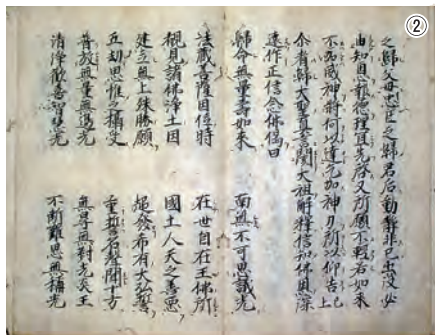 ②
之歸父母忠臣之歸君后動靜非己出沒必
由知恩報德理宜先啓又所願不輕若如來
不加威神將何以達乞加神力所以仰告已上
尒者歸大聖眞言閱大祖解釋信知佛恩深
遠作正信念佛偈曰
歸命無量壽如來 南無不可思議光
法藏菩薩因位時 在世自在王佛所
覩見諸佛淨土因 國土人天之善惡
建立無上殊勝願 超發希有大弘誓
五劫思惟之攝受 重誓名聲聞十方
普放無量無邊光 無㝵無對光炎王
清淨歡喜智慧光 不斷難思無稱光